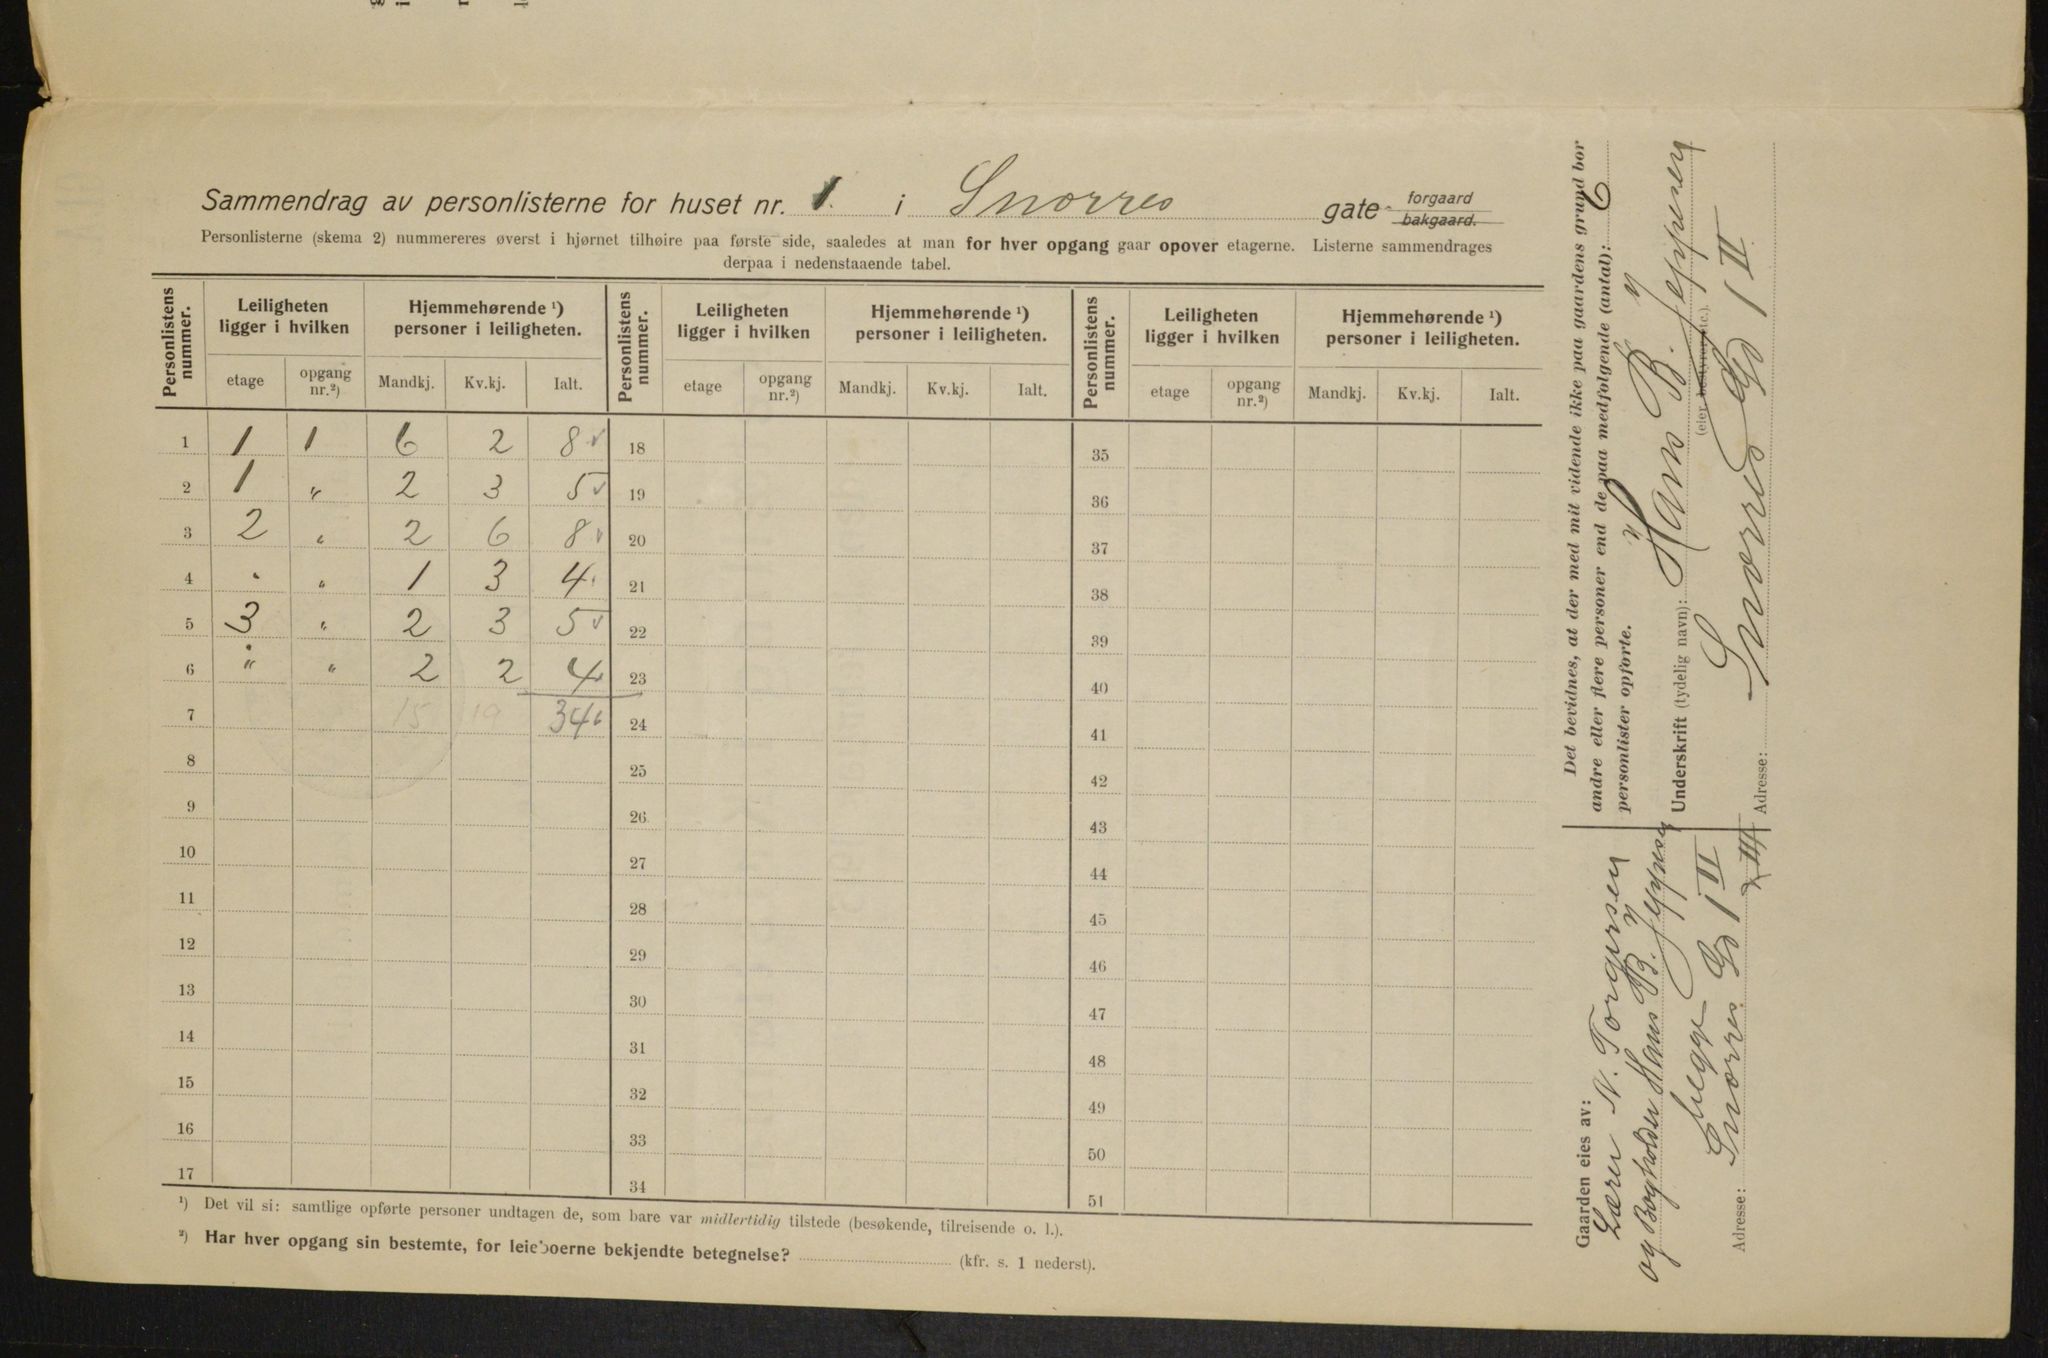 Sammendrag av personlisterne for huset nr. 1. i Snorres gate forgaard
bakgaard.
Personlisterne (skema 2) nummereres øverst i hjørnet tilhøire paa første side, saaledes at man for hver opgang gaar opover etagerne. Listerne sammendrages
derpaa i nedenstaaende tabel.
Personlistens nummer. Leiligheten ligger i hvilken Hjemmehørende ¹) personer i leiligheten. Personlistens nummer. Leiligheten ligger i hvilken Hjemmehørende ¹) personer i leiligheten. Personlistens nummer. Leiligheten ligger i hvilken Hjemmehørende ¹) personer i leiligheten.
etage opgang nr.²) Mandkj. Kv.kj. Ialt. etage opgang nr.²) Mandkj. Kv.kj. Ialt. etage opgang nr.²) Mandkj. Kv.kj. Ialt.
1 1 1 6 2 8 18 35
2 1 " 2 3 5 19 36
3 2 " 2 6 8 20 37
4 " " 1 3 4 21 38
5 3 " 2 3 5 22 39
6 " " 2 2 4 23 40
7 15 19 34 24 41
8 25 42
9 26 43
10 27 44
11 28 45
12 29 46
13 30 47
14 31 48
15 32 49
16 33 50
17 34 51
¹) Det vil si: samtlige opførte personer undtagen de, som bare var midlertidig tilstede (besøkende, tilreisende o. l.).
²) Har hver opgang sin bestemte, for leieboerne bekjendte betegnelse? (kfr. s. 1 nederst).
Det bevidnes, at der med mit vidende ikke paa gaardens grund bor
andre eller flere personer end de paa medfølgende (antal): 6
personlister opførte.
Underskrift (tydelig navn): Hans B. Jeppesen
(eier bestyrer etc.).
Adresse: Snorres Gd 1 II
Gaarden eies av:
Lærer N. Torgersen
og Bogholder Hans B. Jeppesen
begge
Snorres Gd 1 II
Adresse: III